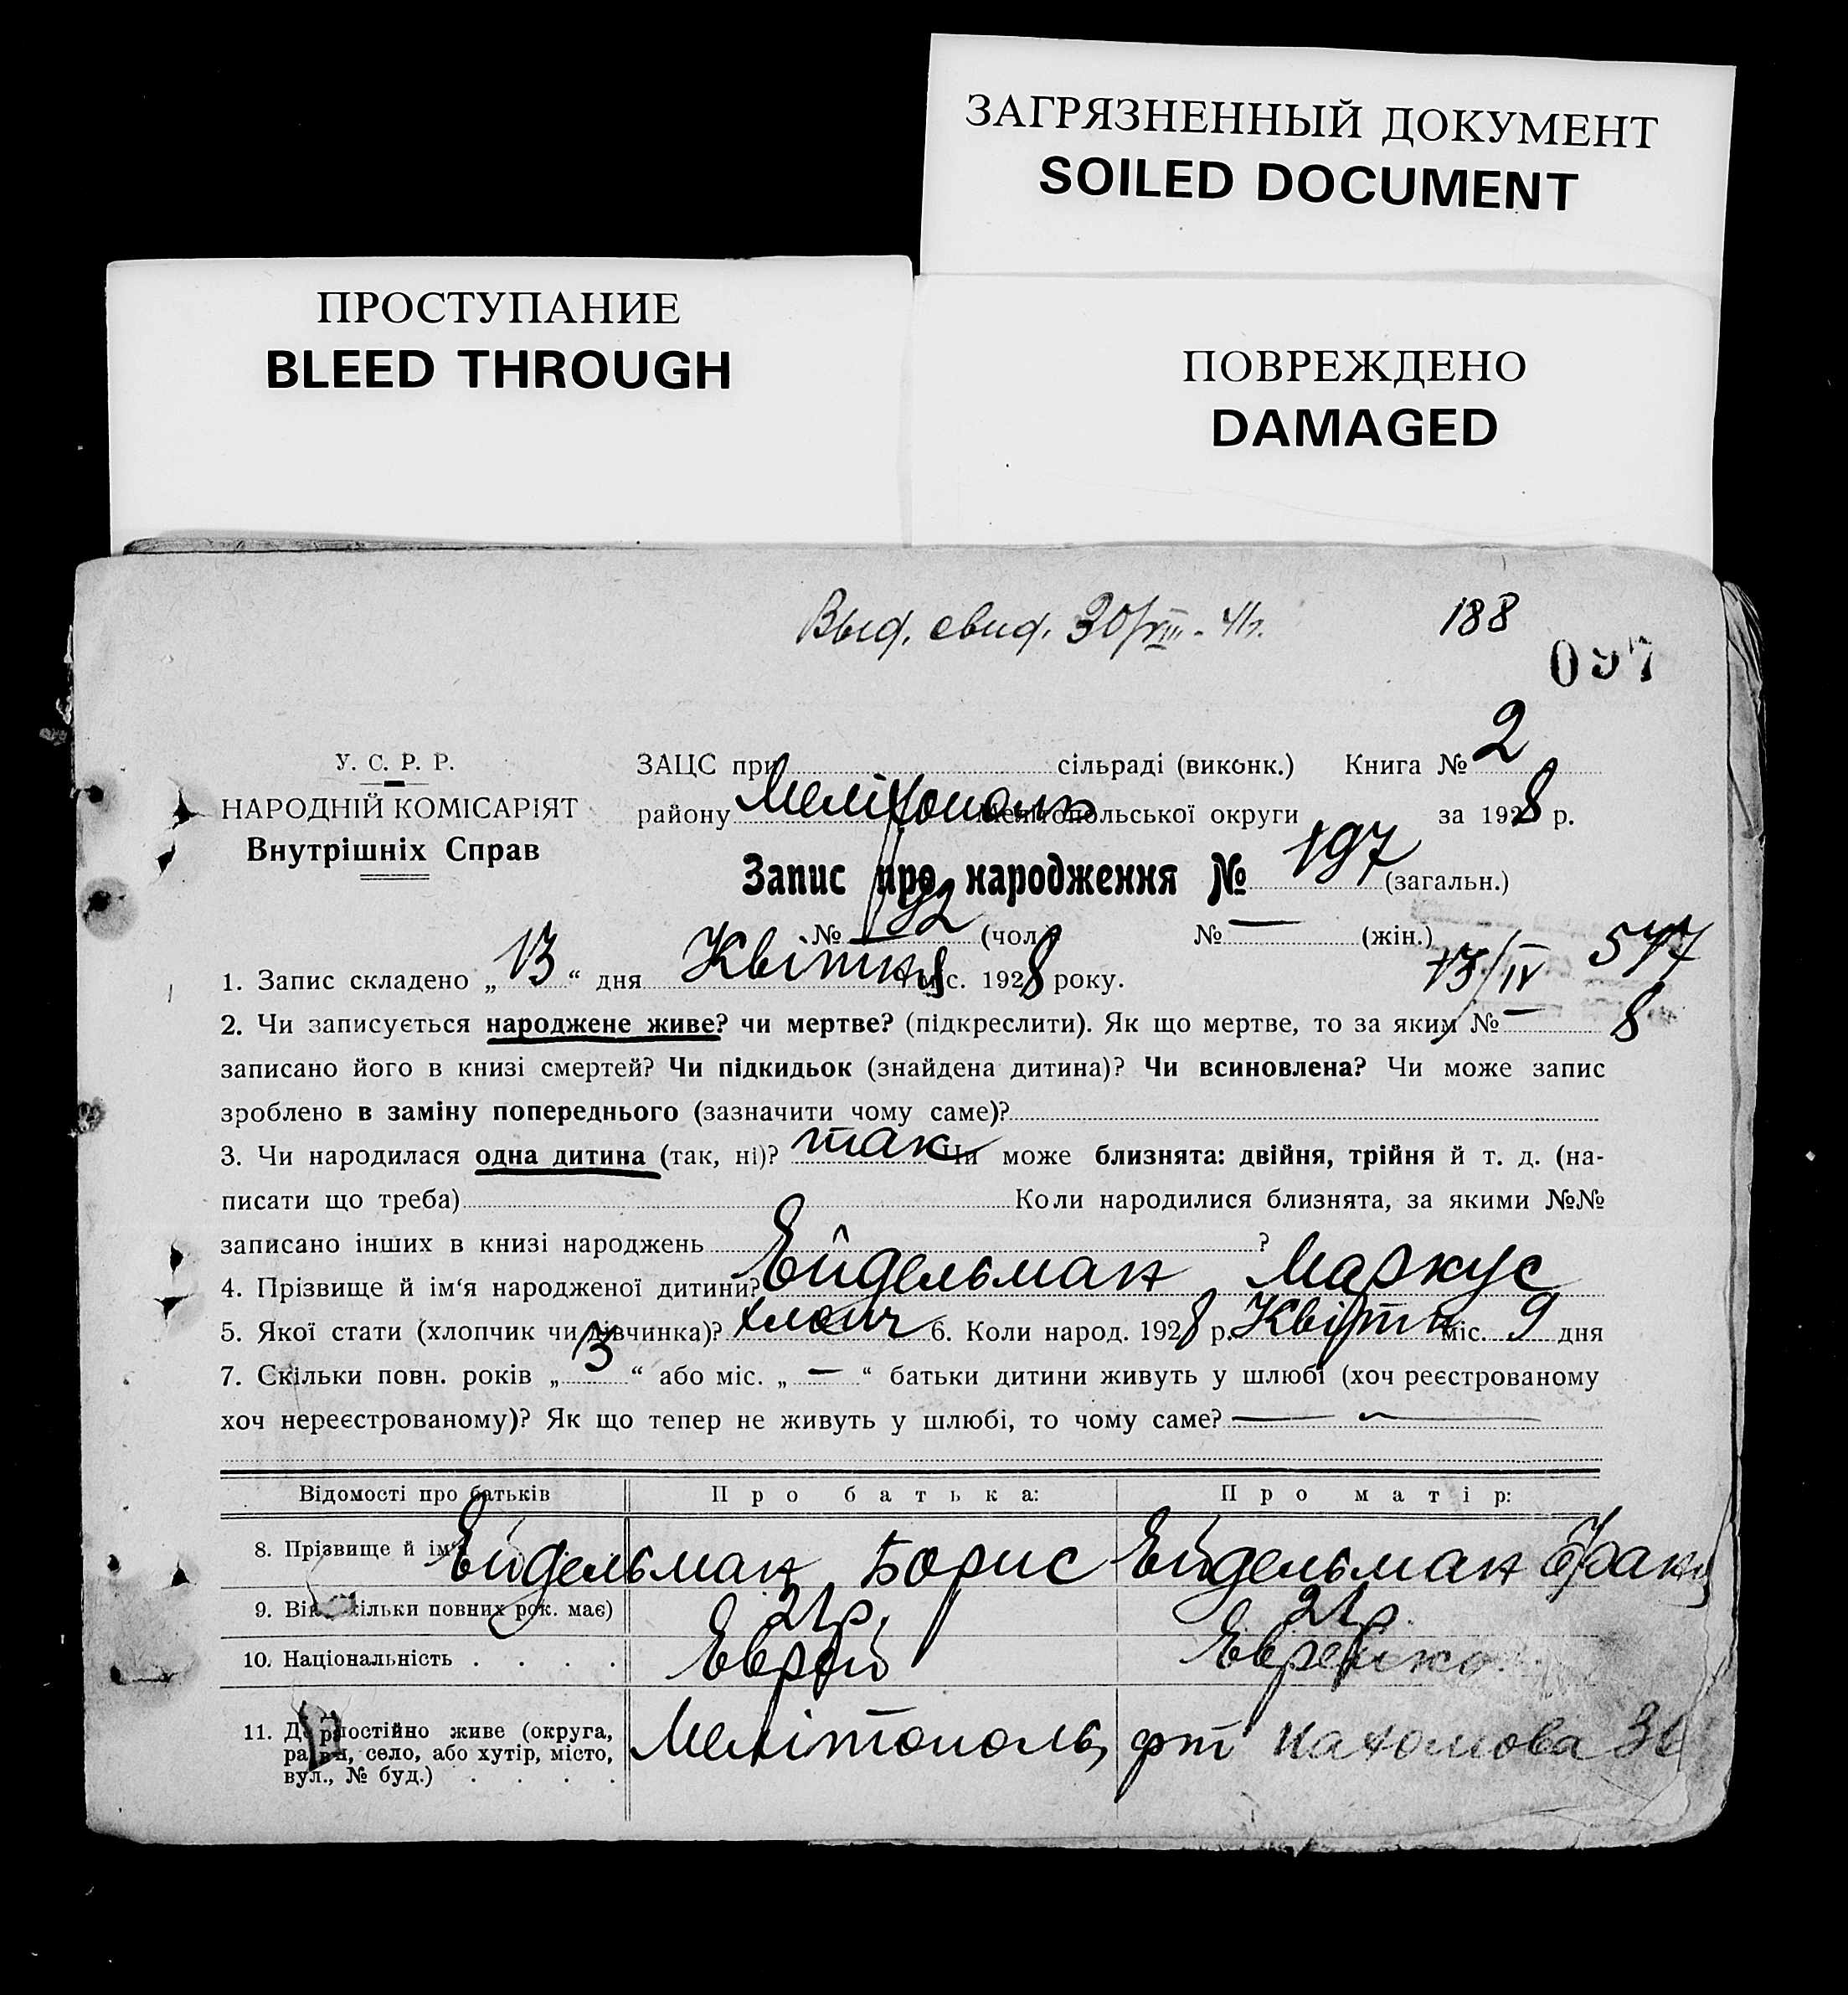 ЗАГРЯЗНЕННЫЙ ДОКУМЕНТ
SOILED DOCUMENT
ПРОСТУПАНИЕ
BLEED THROUGH
ПОВРЕЖДЕНО
DAMAGED
Выд. свид. 30/VIII - 41г.
188
097
У. С. Р. Р.
НАРОДНІЙ КОМІСАРІЯТ
Внутрішніх Справ
ЗАЦС при сільраді (виконк.) Книга № 2
району Мелітополь Мелітопольської округи за 1928 р.
Запис про народження № 197 (загальн.)
№ 192 (чол.) № — (жін.)
13/IV 577
8
1. Запис складено „13“ дня Квітня міс. 1928 року.
2. Чи записується народжене живе? чи мертве? (підкреслити). Як що мертве, то за яким № —
записано його в книзі смертей? Чи підкидьок (знайдена дитина)? Чи всиновлена? Чи може запис
зроблено в заміну попереднього (зазначити чому саме)?
3. Чи народилася одна дитина (так, ні)? так Чи може близнята: двійня, трійня й т. д. (на-
писати що треба) Коли народилися близнята, за якими №№
записано інших в книзі народжень ?
4. Прізвище й ім‘я народженої дитини? Ейдельман Маркус
5. Якої стати (хлопчик чи дівчинка)? хлопч 6. Коли народ. 1928 р. Квітня міс. 9 дня
7. Скільки повн. років „3“ або міс. „—“ батьки дитини живуть у шлюбі (хоч реєстрованому
хоч нереєстрованому)? Як що тепер не живуть у шлюбі, то чому саме? — —
Відомості про батьків Про батька: Про матір:
8. Прізвище й ім‘я Ейдельман Борис Ейдельман
9. Вік (скільки повних рок. має) 21р. 21р.
10. Національність . . . . Еврей Еврейка
11. Де постійно живе (округа,
район, село, або хутір, місто,
вул., № буд.) . . . .
Мелітополь,